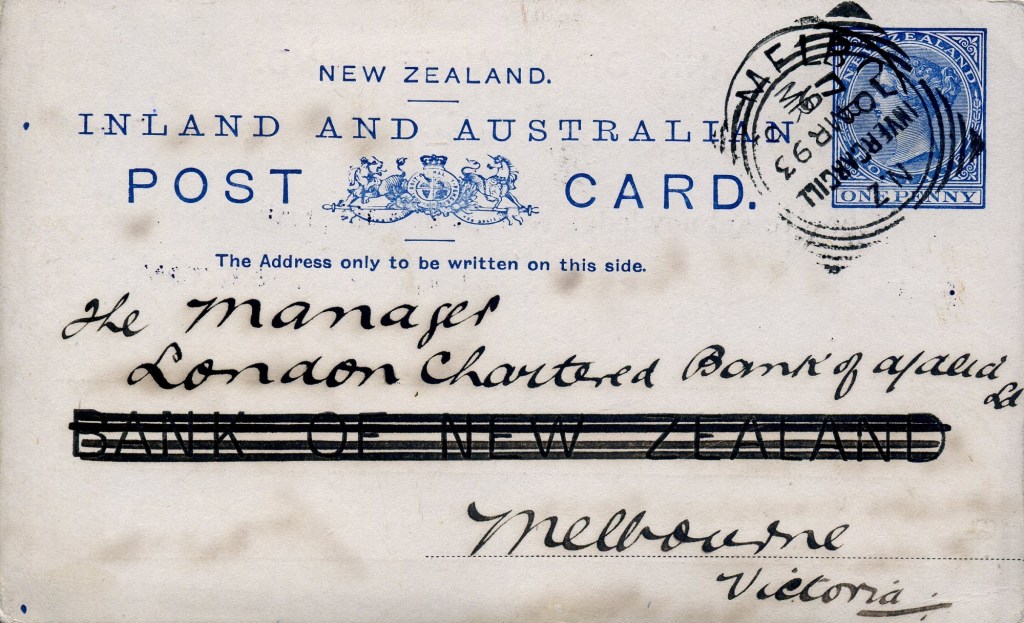 NEW ZEALAND.
INLAND AND AUSTRALIAN
POST CARD.
The Address only to be written on this side.
ZEALAND
ONE PENNY
MELB
INVERCARGILL
N.Z
MR 93
The Manager
London Chartered Bank of
Ld
BANK OF NEW ZEALAND
Melbourne
Victoria